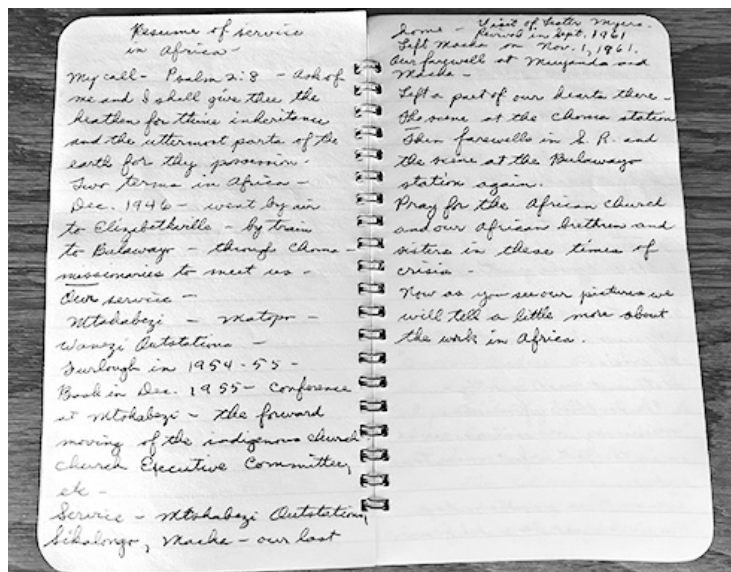 Resume of service
in Africa -
My call - Psalm 2:8 - Ask of
me and I shall give thee the
heathen for thine inheritance
and the uttermost parts of the
earth for thy possession.
Two terms in Africa -
Dec. 1946 - went by air
to Elizabethville - by train
to Bulawayo - through Choma -
missionaries to meet us -
Our service -
Mtshabezi - Matopo -
Wanezi Outstations -
Furlough in 1954-55 -
Back in Dec. 1955 - Conference
at Mtshabezi - the forward
moving of the indigenous church
Church Executive Committee,
etc -
Service - Mtshabezi Outstations,
Sikalongo, Macha - our last
home - Visit of Lester Myers.
Revival in Sept. 1961
Left Macha on Nov. 1, 1961.
Our farewell at and
Macha -
Left a part of our hearts there -
The scene at the Choma station
Then farewells in S. R. and
the scene at the Bulawayo
station again.
Pray for the African church
and our African brethren and
sisters in these times of
crisis -
Now as you see our pictures we
will tell a little more about
the work in Africa.